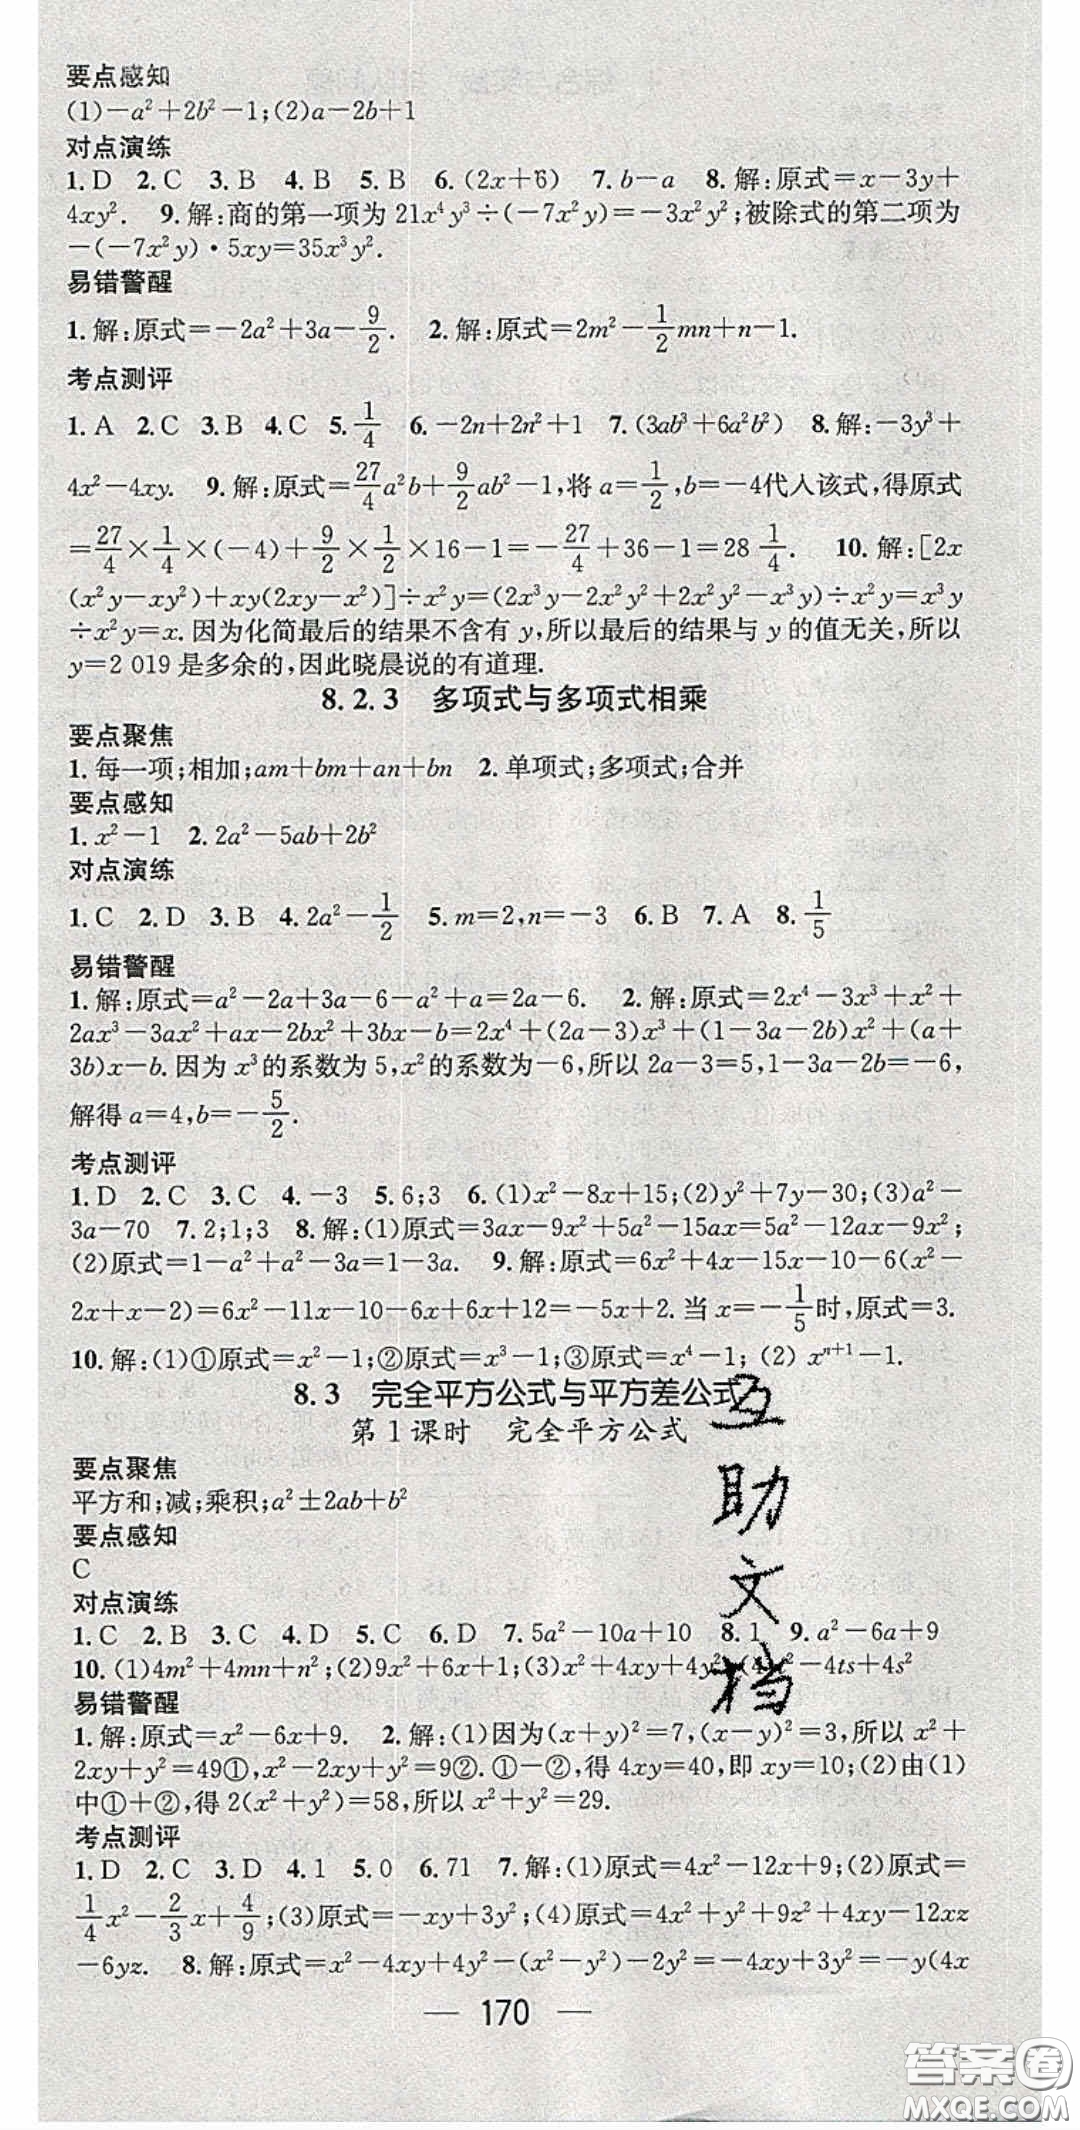 要点感知
(1)－a²＋2b²－1;(2)a－2b＋1
对点演练
1. D 2. C 3. B 4. B 5. B 6. (2x＋6) 7. b－a 8. 解:原式＝x－3y＋
4xy². 9. 解:商的第一项为 21x⁴y³÷(－7x²y)＝－3x²y²;被除式的第二项为
－(－7x²y)·5xy＝35x³y².
易错警醒
1. 解:原式＝－2a²＋3a－9/2. 2. 解:原式＝2m²－1/2mn＋n－1.
考点测评
1. A 2. C 3. B 4. C 5. 1/4 6. －2n＋2n²＋1 7. (3ab³＋6a²b²) 8. 解:－3y³＋
4x²－4xy. 9. 解:原式＝27/4a²b＋9/2ab²－1,将 a＝1/2,b＝－4代入该式,得原式
＝27/4×1/4×(－4)＋9/2×1/2×16－1＝－27/4＋36－1＝28 1/4. 10. 解:[2x
(x²y－xy²)＋xy(2xy－x²)]÷x²y＝(2x³y－2x²y²＋2x²y²－x³y)÷x²y＝x³y
÷x²y＝x. 因为化简最后的结果不含有 y,所以最后的结果与 y 的值无关,所以
y＝2 019 是多余的,因此晓晨说的有道理.
8.2.3 多项式与多项式相乘
要点聚焦
1. 每一项;相加;am＋bm＋an＋bn 2. 单项式;多项式;合并
要点感知
1. x²－1 2. 2a²－5ab＋2b²
对点演练
1. C 2. D 3. B 4. 2a²－1/2 5. m＝2,n＝－3 6. B 7. A 8. 1/5
易错警醒
1. 解:原式＝a²－2a＋3a－6－a²＋a＝2a－6. 2. 解:原式＝2x⁴－3x³＋x²＋
2ax³－3ax²＋ax－2bx²＋3bx－b＝2x⁴＋(2a－3)x³＋(1－3a－2b)x²＋(a＋
3b)x－b. 因为 x³的系数为 5,x²的系数为－6,所以 2a－3＝5,1－3a－2b＝－6,
解得 a＝4,b＝－5/2.
考点测评
1. D 2. C 3. C 4. －3 5. 6;3 6. (1)x²－8x＋15;(2)y²＋7y－30;(3)a²－
3a－70 7. 2;1;3 8. 解:(1)原式＝3ax－9x²＋5a²－15ax＝5a²－12ax－9x²;
(2)原式＝1－a²＋a²－3a＝1－3a. 9. 解:原式＝6x²＋4x－15x－10－6(x²－
2x＋x－2)＝6x²－11x－10－6x²＋6x＋12＝－5x＋2. 当 x＝－1/5时,原式＝3.
10. 解:(1)①原式＝x²－1;②原式＝x³－1;③原式＝x⁴－1; (2) xⁿ⁺¹－1.
8.3 完全平方公式与平方差公式
第 1 课时 完全平方公式
要点聚焦
平方和;减;乘积;a²±2ab＋b²
要点感知
C
对点演练
1. C 2. B 3. C 4. D 5. C 6. D 7. 5a²－10a＋10 8. 1 9. a²－6a＋9
10. (1)4m²＋4mn＋n²;(2)9x²＋6x＋1;(3)x²＋4xy＋4y²;(4)t²－4ts＋4s²
易错警醒
1. 解:原式＝x²－6x＋9. 2. 解:(1)因为(x＋y)²＝7,(x－y)²＝3,所以 x²＋
2xy＋y²＝49①,x²－2xy＋y²＝9②. ①－②,得 4xy＝40,即 xy＝10;(2)由(1)
中①＋②,得 2(x²＋y²)＝58,所以 x²＋y²＝29.
考点测评
1. D 2. C 3. D 4. 1 5. 0 6. 71 7. 解:(1)原式＝4x²－12x＋9;(2)原式＝
1/4x²－2/3x＋4/9;(3)原式＝－xy＋3y²;(4)原式＝4x²＋y²＋9z²＋4xy－12xz
－6yz. 8. 解:原式＝x²－4xy＋4y²－(x²－y²)－2y²＝－4xy＋3y²＝－y(4x
— 170 —
互
助
文
档
答案圈
MXQE.COM